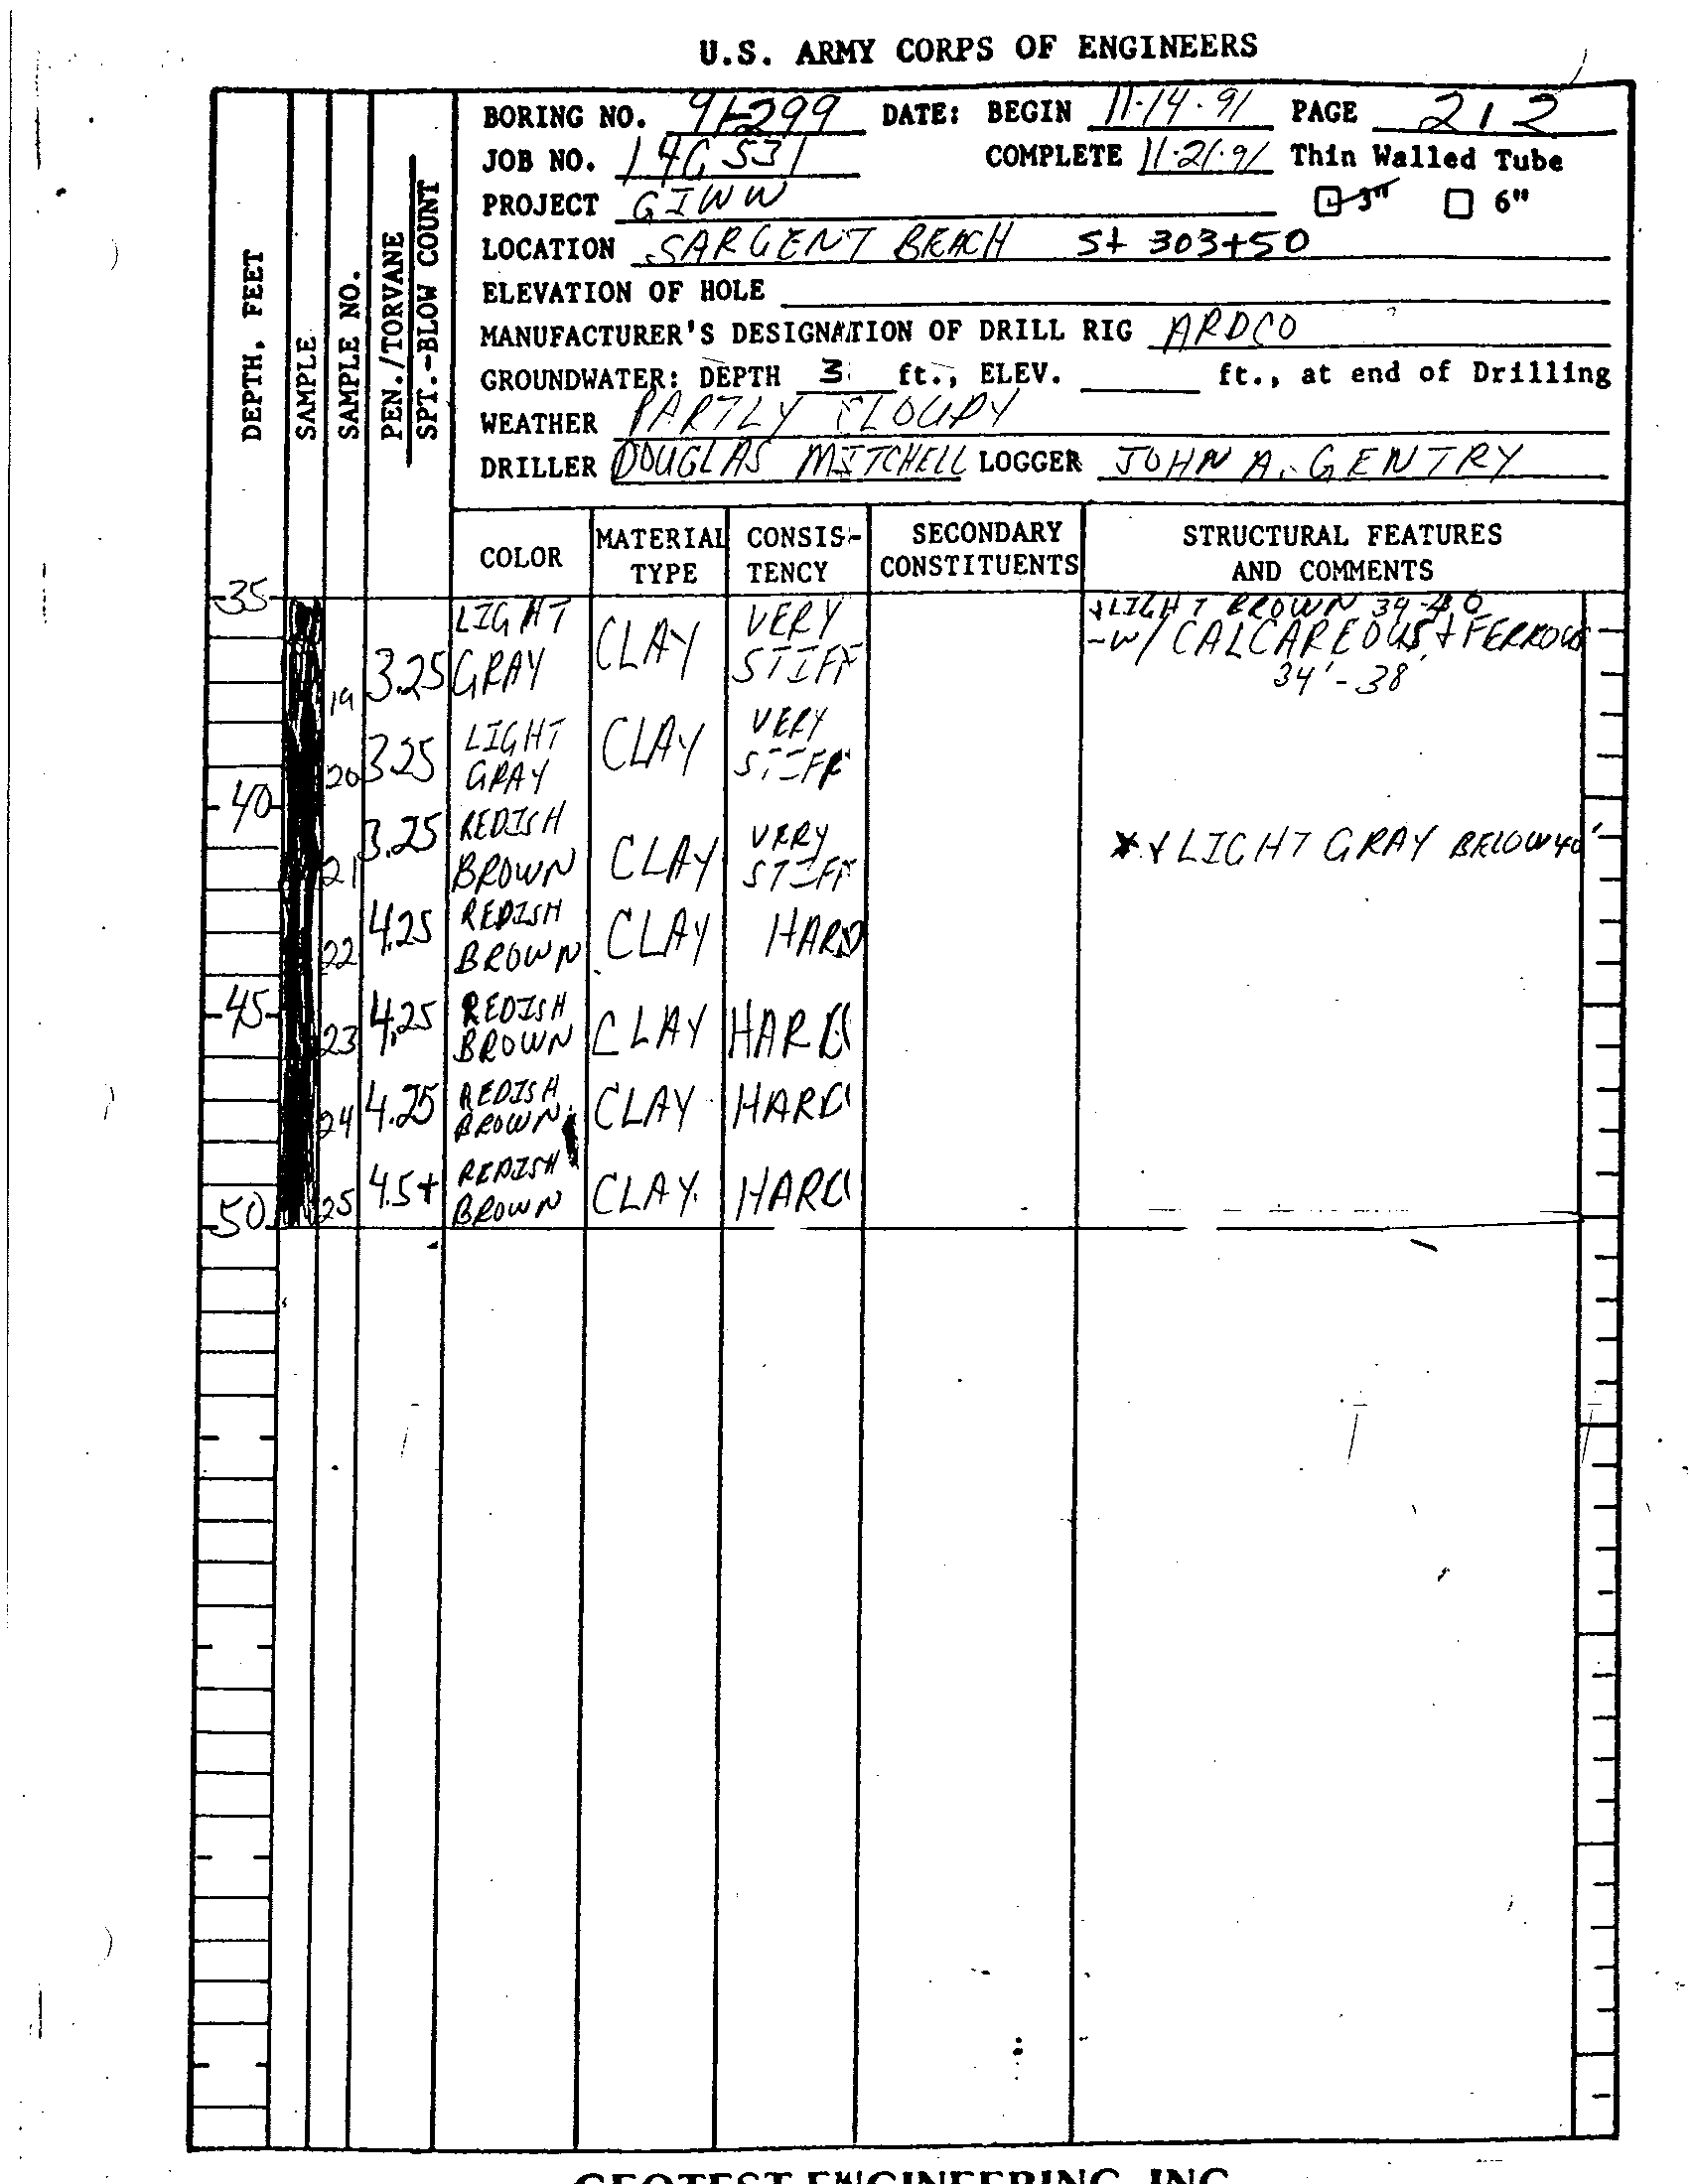 U.S. ARMY CORPS OF ENGINEERS
BORING NO. 91-299 DATE: BEGIN 11-14-91 PAGE 2 / 2
JOB NO. 14G531 COMPLETE 11-21-91 Thin Walled Tube
PROJECT GIWW 3" 6"
LOCATION SARGENT BEACH St 303+50
ELEVATION OF HOLE
MANUFACTURER'S DESIGNATION OF DRILL RIG ARDCO
GROUNDWATER: DEPTH 3 ft., ELEV. ft., at end of Drilling
WEATHER PARTLY CLOUDY
DRILLER DOUGLAS MITCHELL LOGGER JOHN A. GENTRY
DEPTH, FEET
SAMPLE
SAMPLE NO.
PEN./TORVANE
SPT.-BLOW COUNT
COLOR MATERIAL TYPE CONSIS-TENCY SECONDARY CONSTITUENTS STRUCTURAL FEATURES AND COMMENTS
35
LIGHT VERY +LIGHT BROWN 34-40
19 3.25 GRAY CLAY STIFF -W/ CALCAREOUS + FERROUS
34'-38'
LIGHT VERY
20 3.25 GRAY CLAY STIFF
40
REDISH VERY
21 3.25 BROWN CLAY STIFF *+ LIGHT GRAY BELOW 40'
REDISH
22 4.25 BROWN CLAY HARD
45
REDISH
23 4.25 BROWN CLAY HARD
REDISH
24 4.25 BROWN CLAY HARD
REDISH
25 4.5+ BROWN CLAY HARD
50
GEOTEST ENGINEERING, INC.